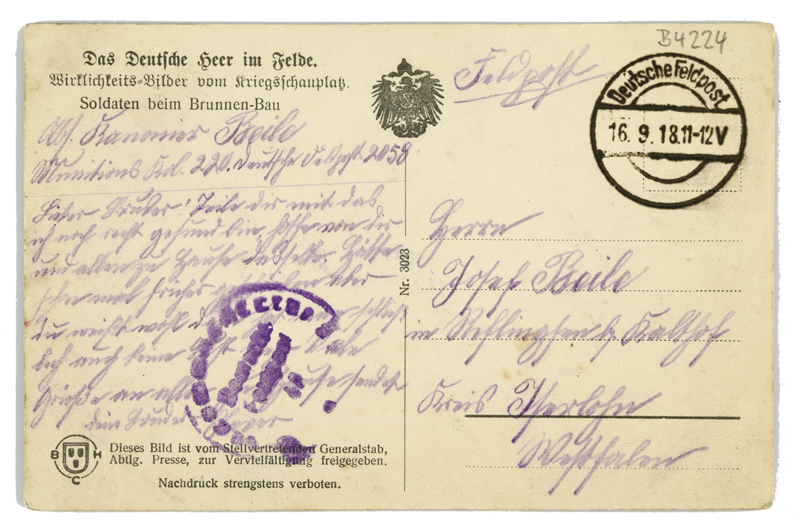 B4224
Das Deutsche Heer im Felde.
Wirklichkeits-Bilder vom Kriegsschauplatz.
Soldaten beim Brunnen-Bau
Feldpost
Deutsche Feldpost
16. 9. 18. 11-12V
Abs. Kanonier Beile
Munitions Kol. 220. Deutsche Feldpost 2058
Lieber Bruder! Teile dir mit das
ich noch recht gesund bin hoffe von dir
und allen zu Hause dasselbe. Hätte
schon mal früher geschrieben aber
du weißt wohl
auch keine
Grüße an alle Hause sendet
dein Bruder
Nr. 3023
Herrn
Josef Beile
in b. Kalthof
Kreis Iserlohn
Westfalen
B H
C
Dieses Bild ist vom Stellvertretenden Generalstab,
Abtlg. Presse, zur Vervielfältigung freigegeben.
Nachdruck strengstens verboten.